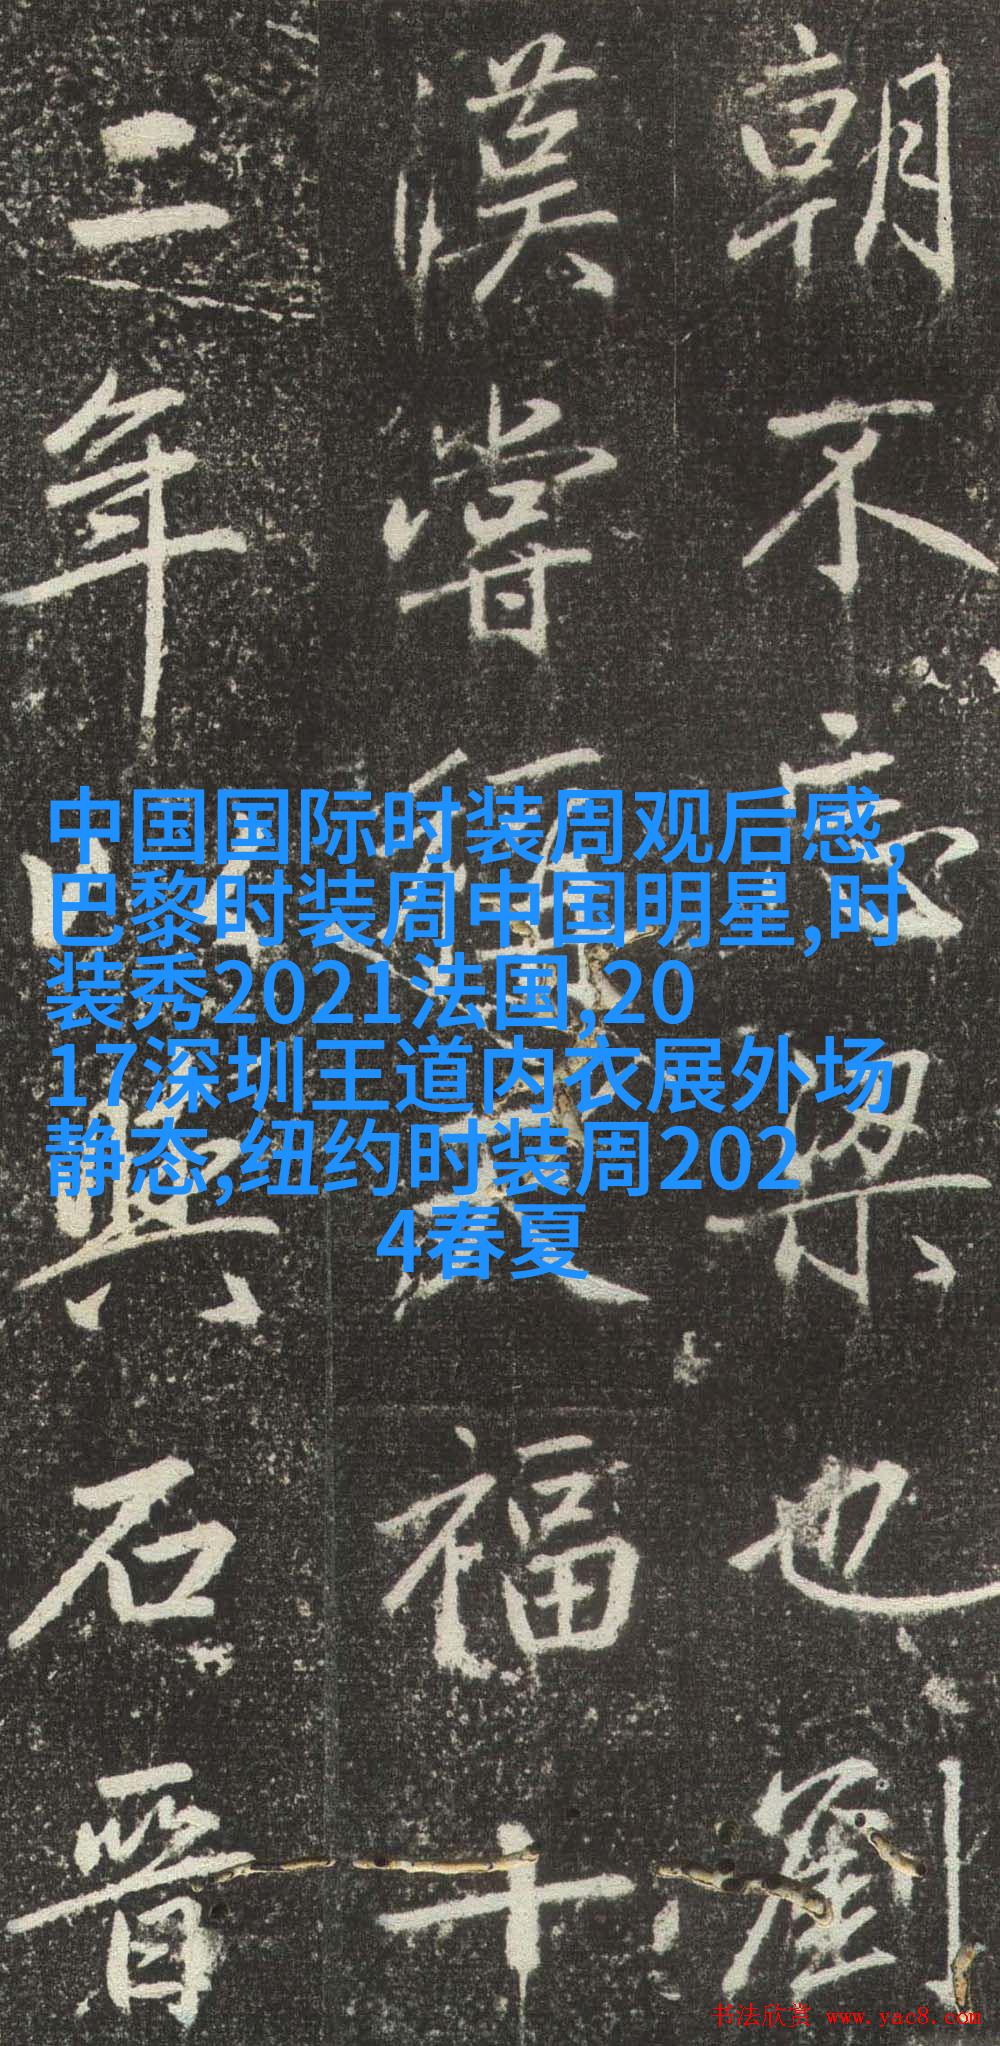 朝不亡梁也劉
漢嘗天福十
二年以與石晉
中国国际时装周观后感,
巴黎时装周中国明星,时
装秀2021法国,20
17深圳王道内衣展外场
静态,纽约时装周202
4春夏
书法欣赏 www.yac8.com